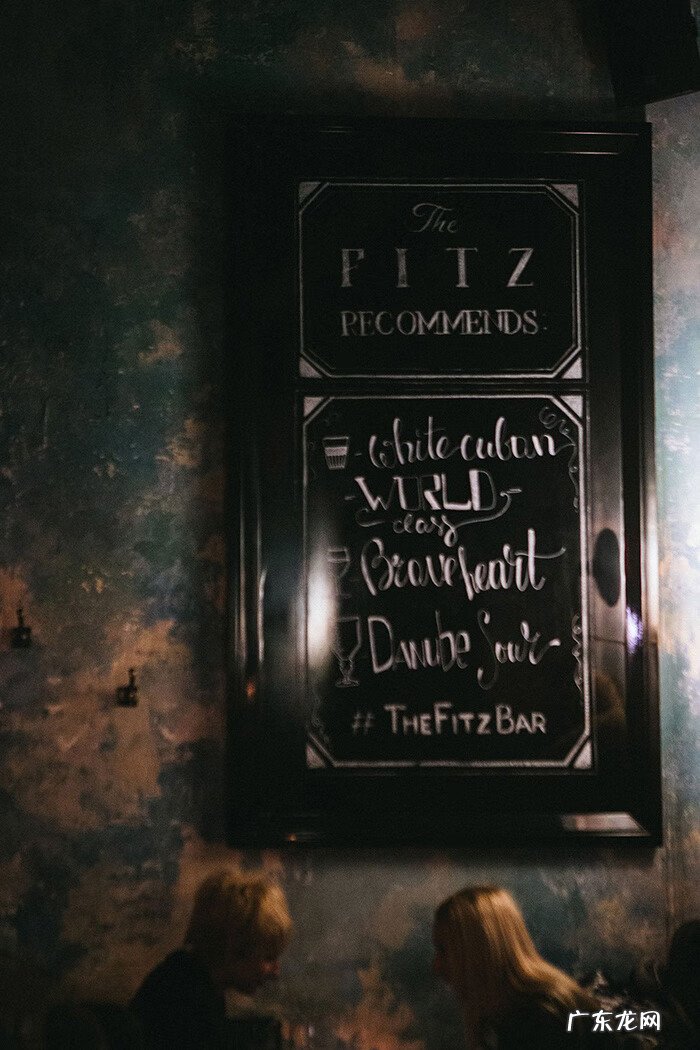 The
FITZ
RECOMMENDS:
-White cuban
-WORLD-
class
Braveheart
DANUBE Sour-
# THEFITZBAR
广东龙网